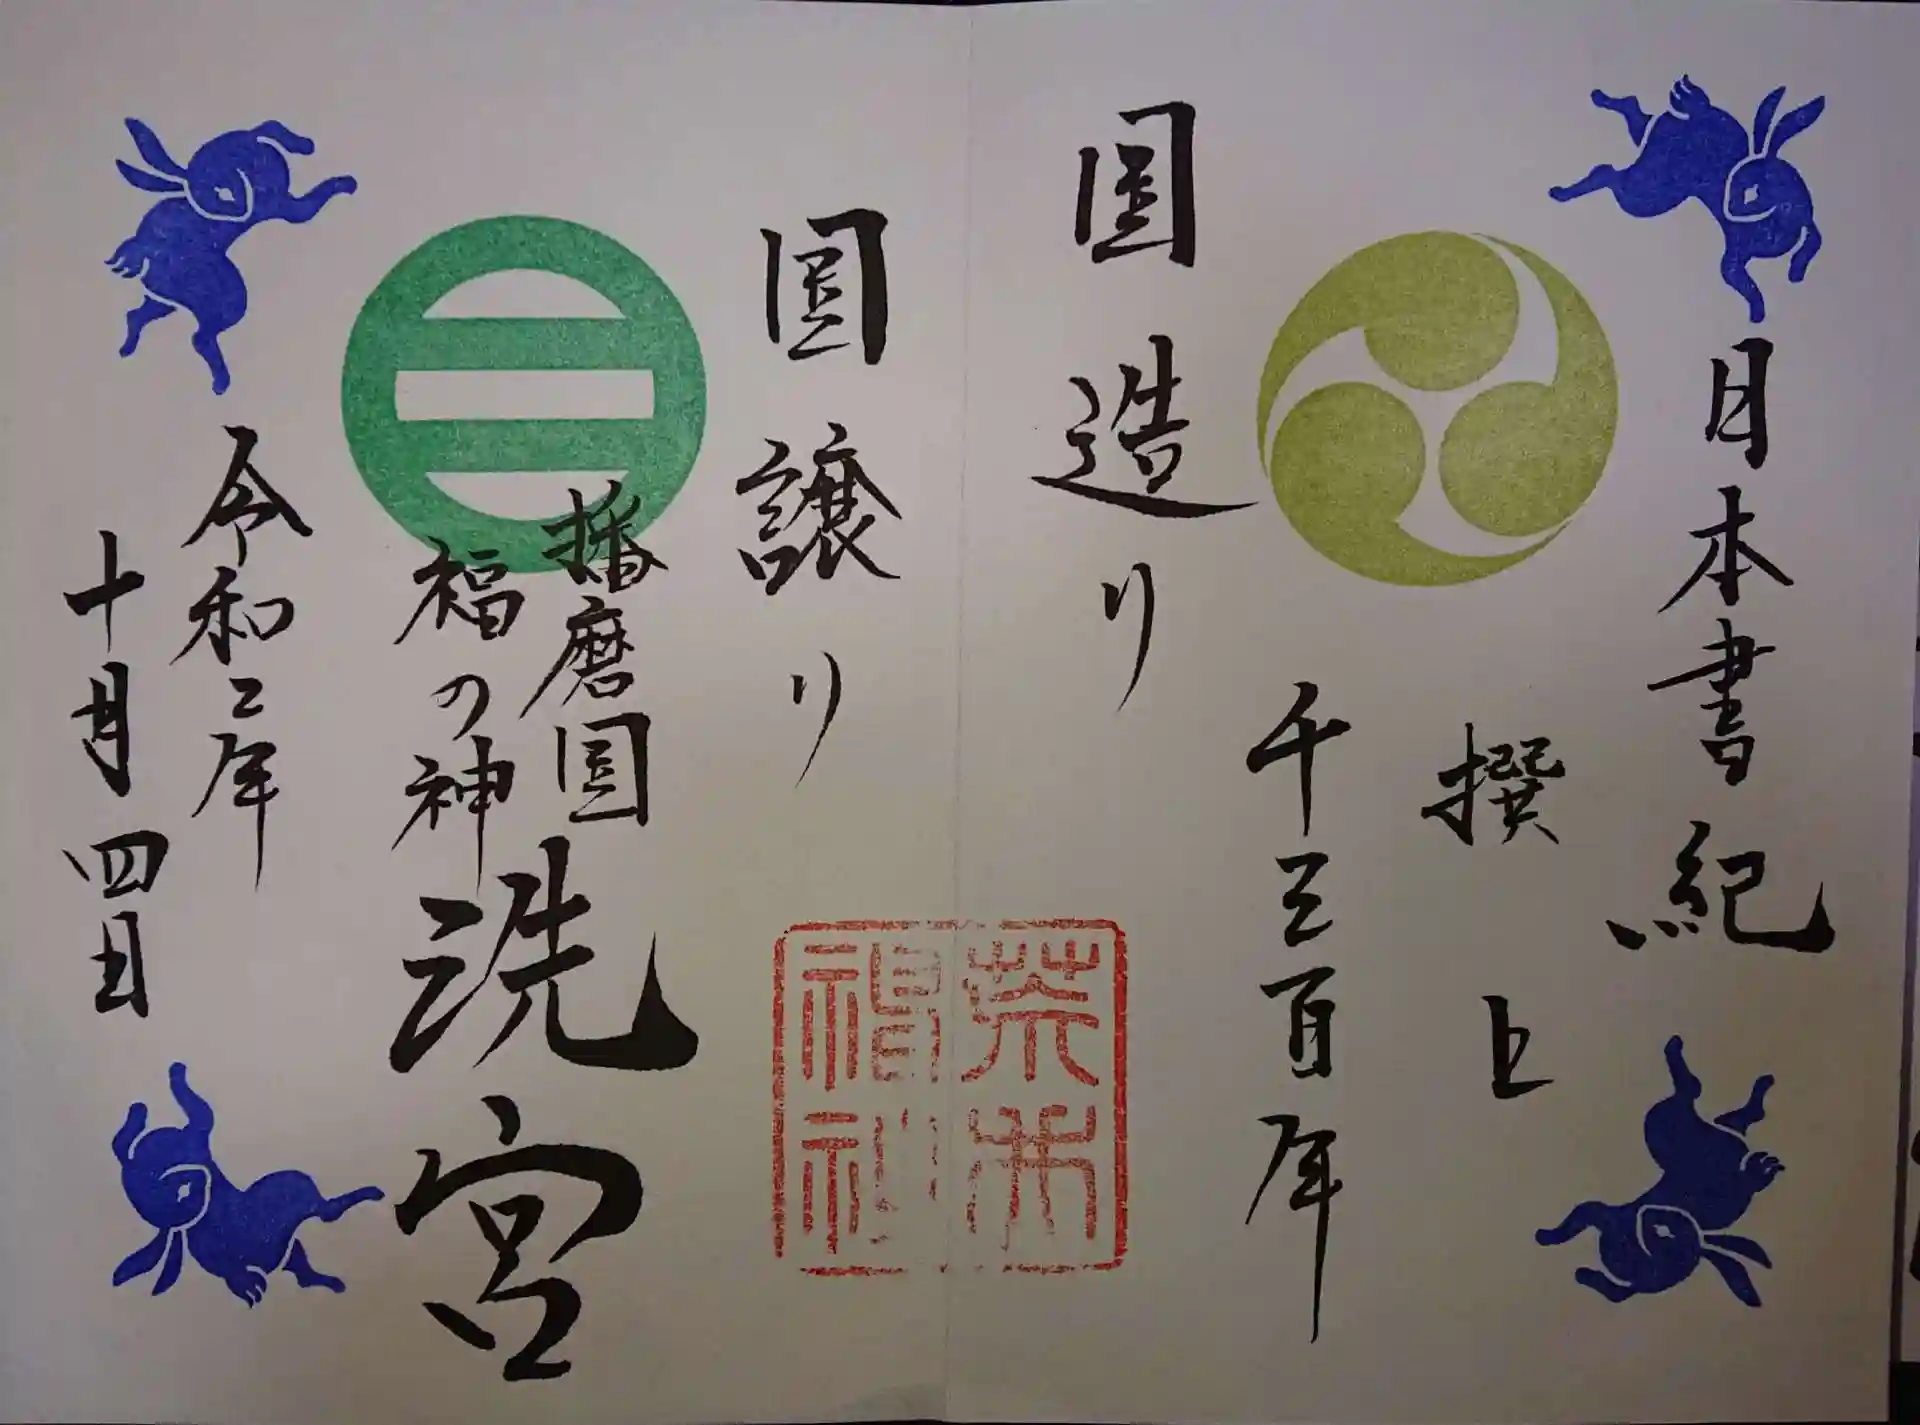 日本書紀
撰上
千三百年
国造り
国譲り
播磨国
福の神
洗宮
令和二年
十月四日
荒井
神社